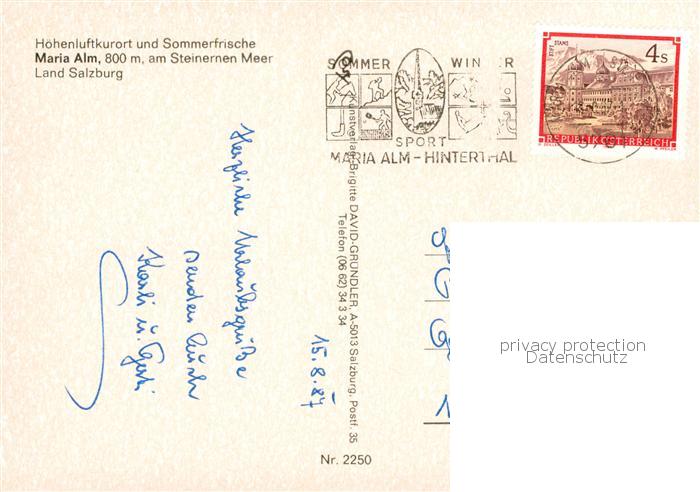 Höhenluftkurort und Sommerfrische
Maria Alm, 800 m, am Steinernen Meer
Land Salzburg
SOMMER WINTER
SPORT
MARIA ALM – HINTERTHAL
STIFT STAMS
4 S
REPUBLIK ÖSTERREICH
Herzliche Urlaubsgrüße
senden Euch
15.8.87
Kunstverlag Brigitte DAVID-GRÜNDLER, A-5013 Salzburg, Postf. 35
Telefon (06 62) 34 3 34
Nr. 2250
privacy protection
Datenschutz